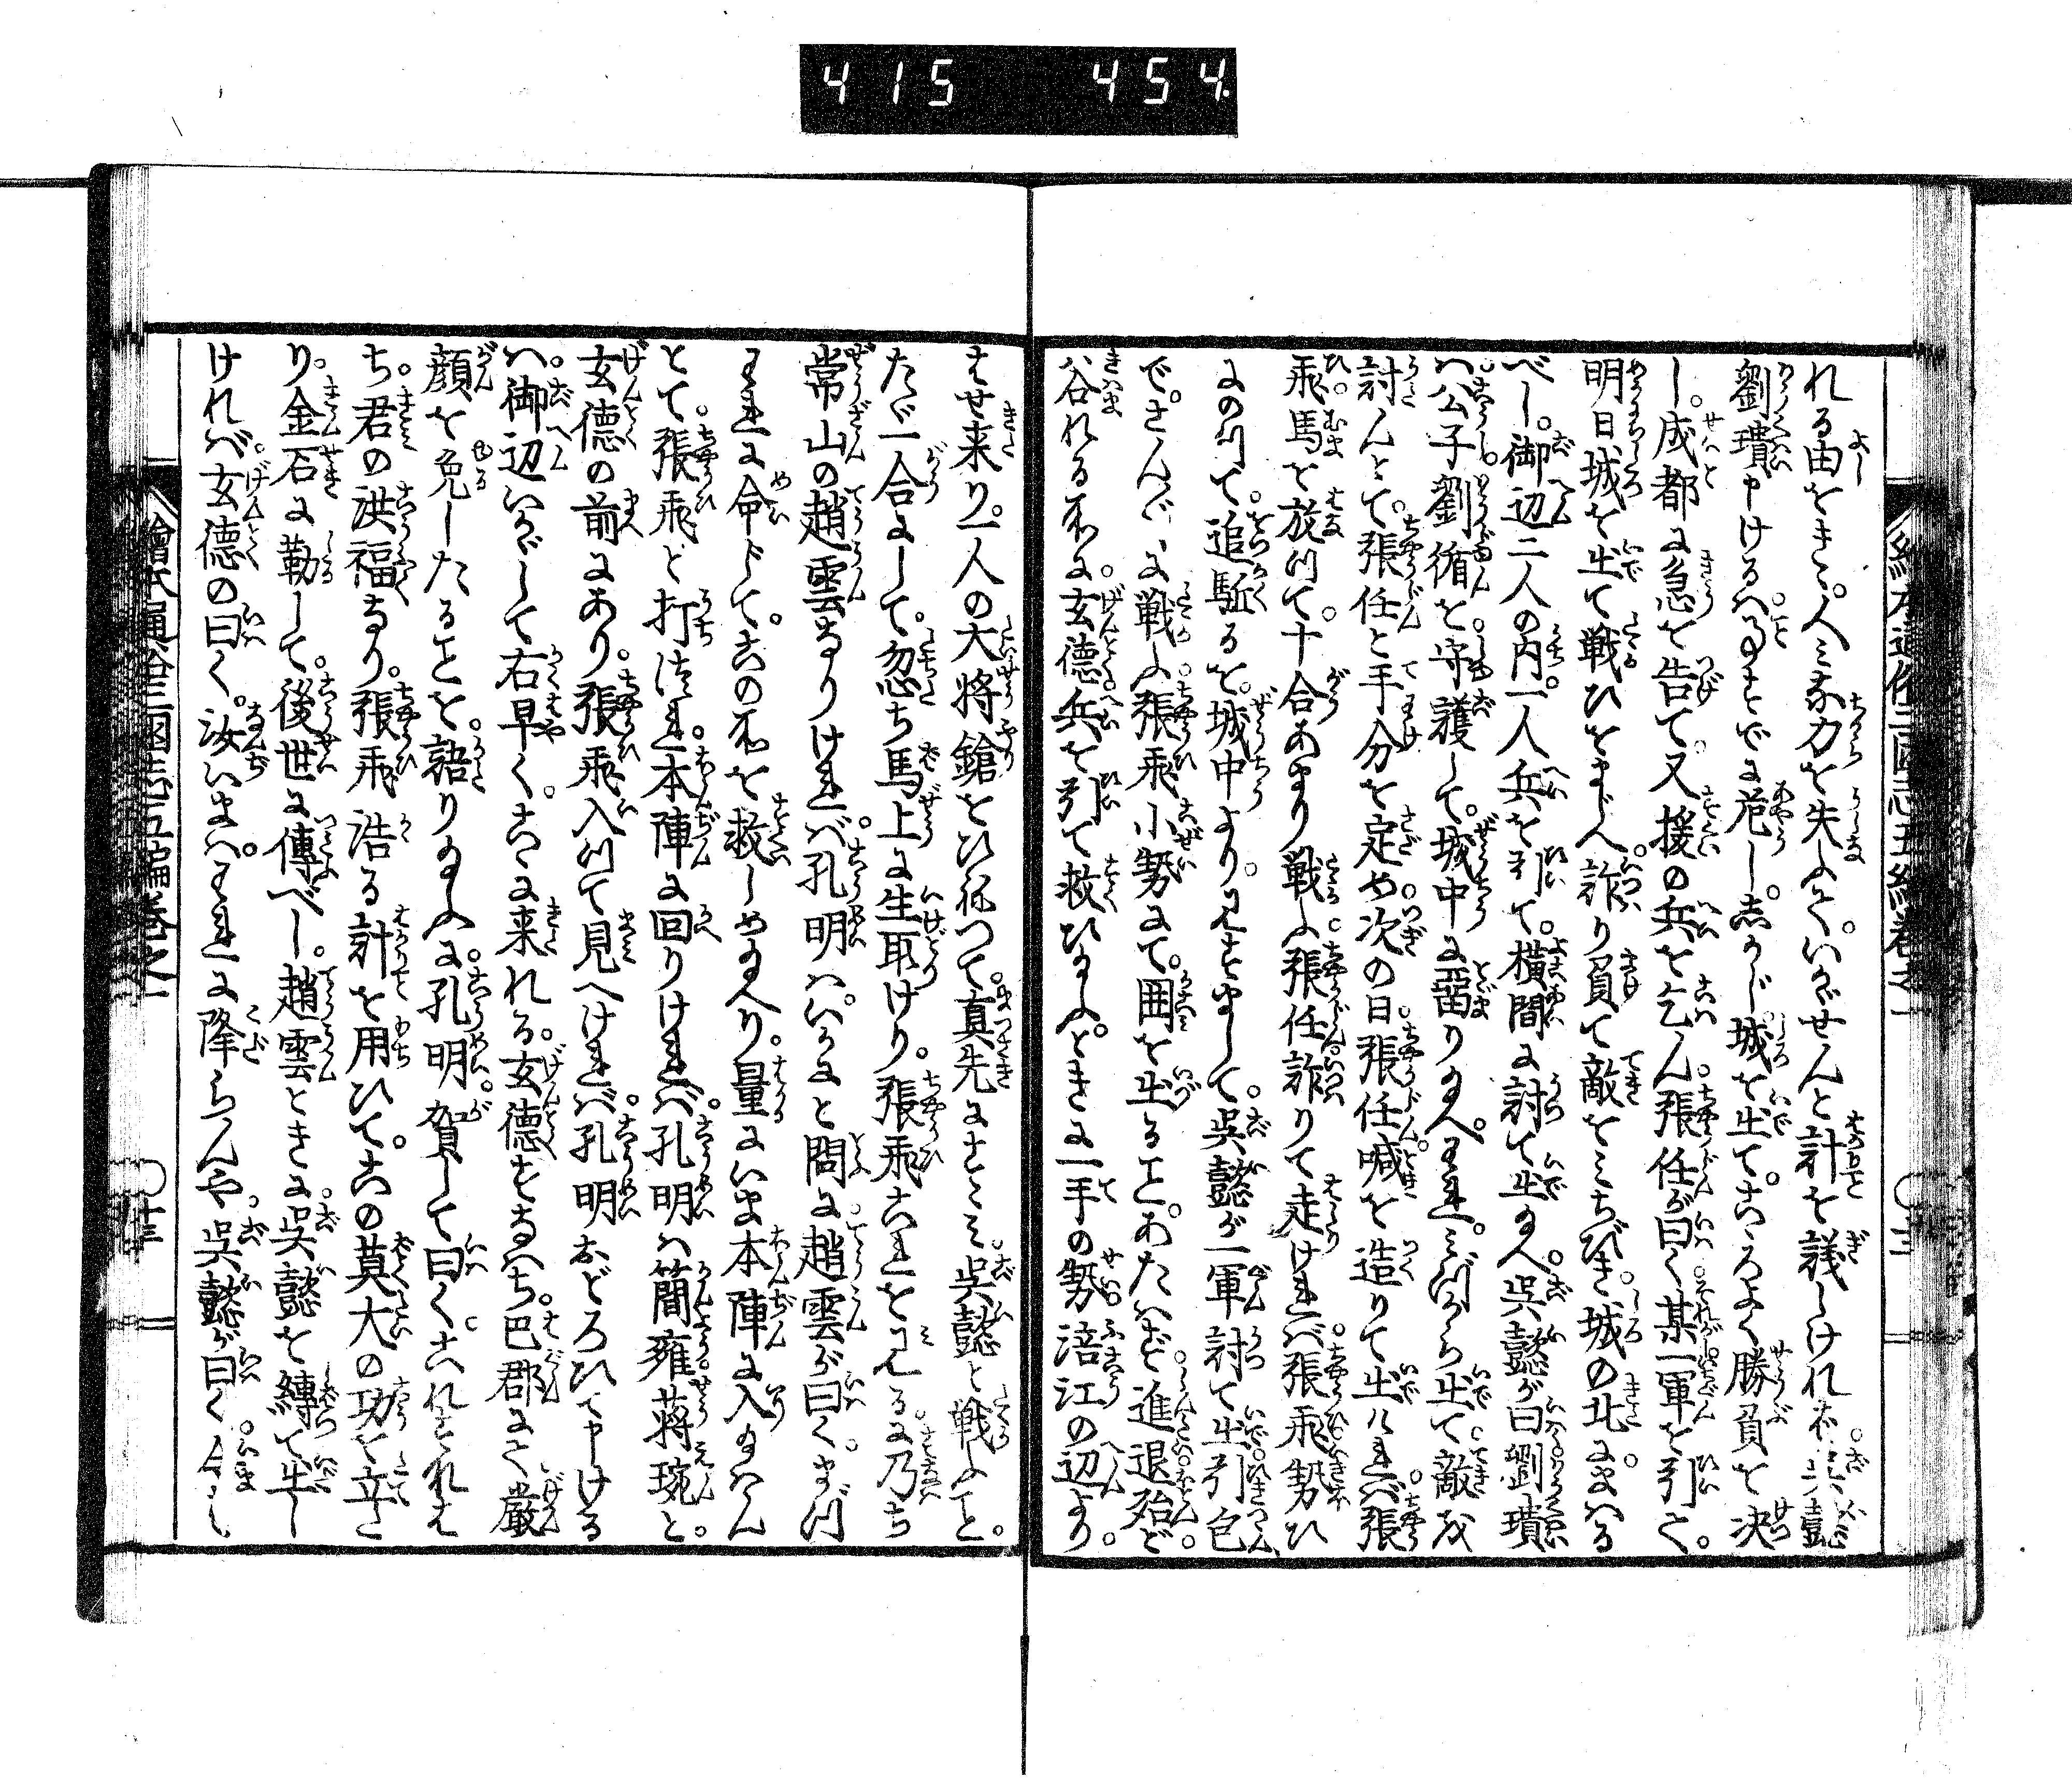 415 454.
れる由をきゝ。人ミな力を失ふて。いかゞせんと計を議しけれは。呉懿
劉璝申けるハ。事すでに危し。しかじ城を出て。こゝろよく勝負を決
し。成都に急を告て。又援の兵を乞ん。張任が曰く某一軍を引て。
明日城を出て戦ひをまじへ。詐り負て敵をミちびき。城の北にまハる
べし。御辺二人の内。一人兵を引て。横間に討て出給へ。呉懿が曰劉璝
ハ公子劉循を守護して。城中に畄り給へ。それがしミづから出て敵を
討んとて。張任と手分を定め。次の日張任喊を造りて出けれバ張
飛馬を放つて。十合あまり戦ふ。張任詐りて走けれバ。張飛勢ひ
にのつて。追駈るを。城中より。見すまして。呉懿が一軍討て出引包
で。さん〴〵に戦ふ。張飛小勢にて。囲を出ること。あたハず進退殆ど。
谷れる所に。玄徳兵を引て救ひ給ふ。ときに一手の勢涪江の辺より。
はせ来り。一人の大将鎗をひねつて。真先にすゝミ。呉懿と戦ふこと。
たゞ一合にして。忽ち馬上に生取けり。張飛これを見るに。乃ち
常山の趙雲なりけれバ。孔明ハ。いかにと問に。趙雲が曰く。まづ
われに命じて。この所を救しめ給へり。量にいま本陣に入給ハん
とて。張飛と打つれ。本陣に回りけれバ。孔明ハ簡雍。蒋琬と。
玄徳の前にあり。張飛入つて見へけれバ。孔明おどろひて申ける
ハ。御辺いかゞして右早く。こゝに来れる。玄徳すなハち。巴郡にて厳
顔を免したることを。語り給ふに。孔明。賀して曰く。これそれは
ち。君の洪福なり。張飛浩る計を用ひて。この莫大の功を立た
り。金石に勒して。後世に傳べし。趙雲ときに。呉懿を縛て出し
けれバ。玄徳の曰く。汝いまハ。われに降らんや。呉懿が曰く。今ハし
繪本通俗三國志五編巻之一
十三